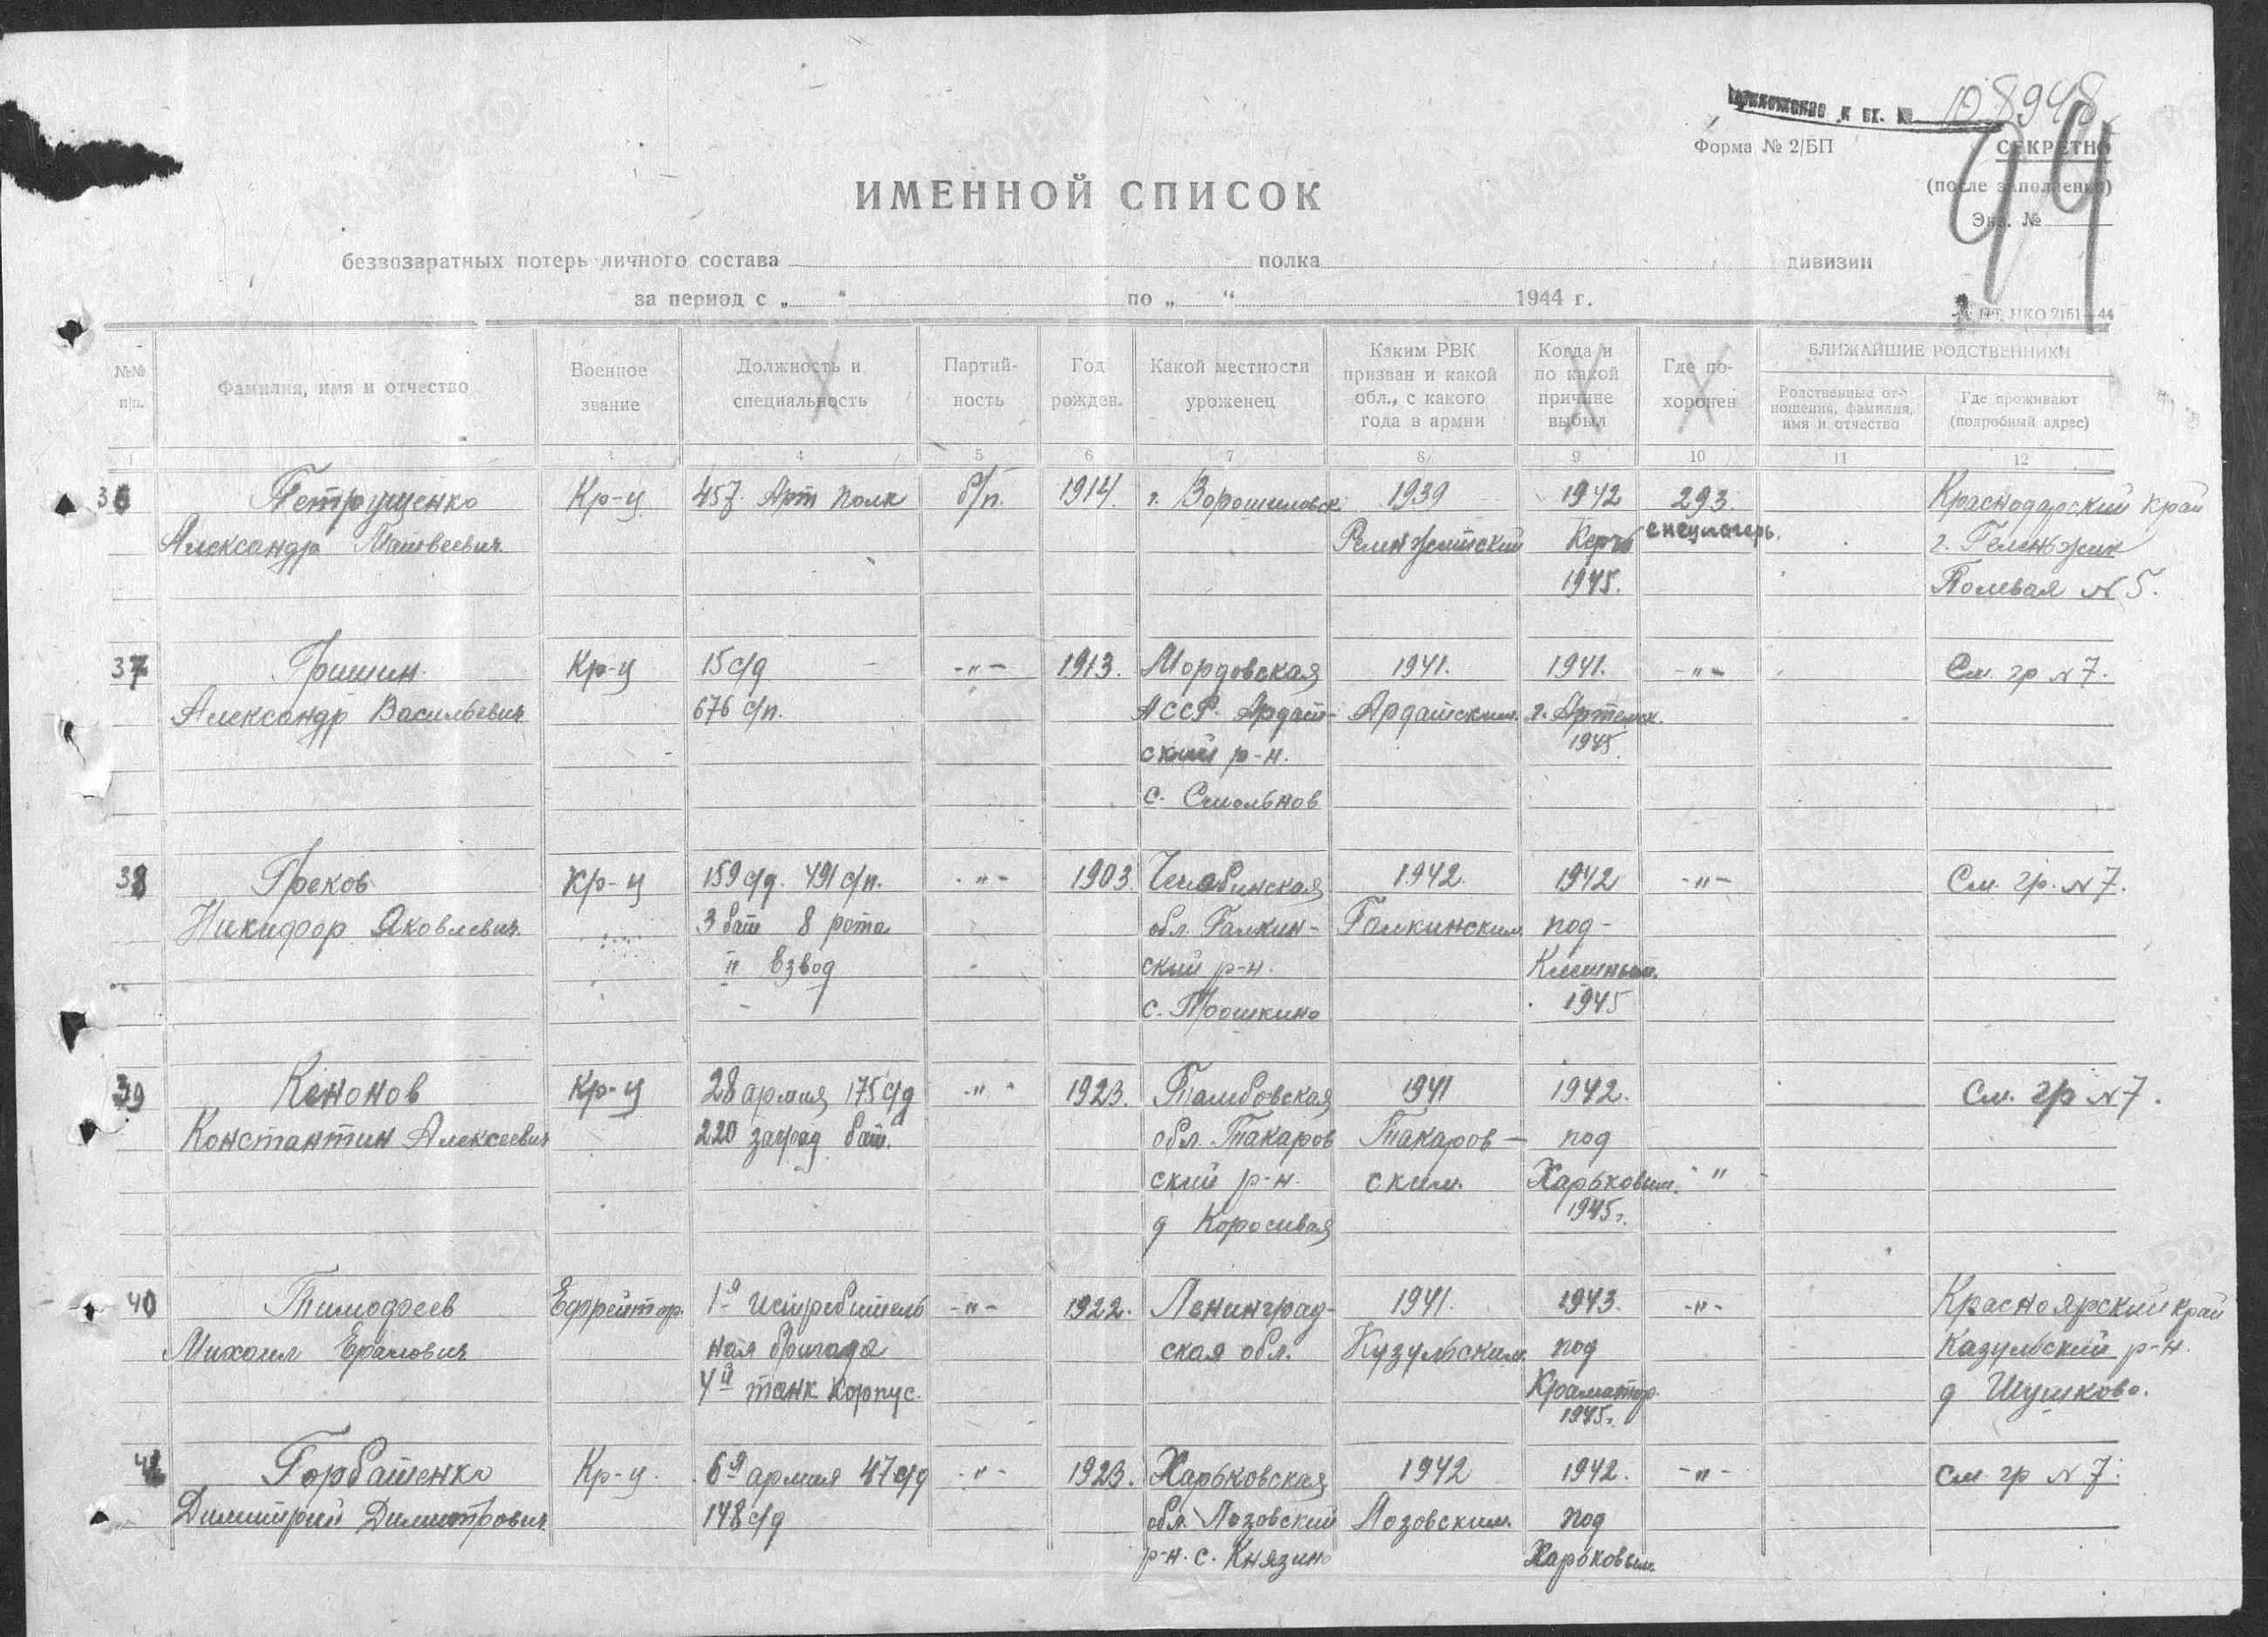 Приложение к вх. № 08948
94
Форма № 2/БП
СЕКРЕТНО
(после заполнения)
Экз. №
ИМЕННОЙ СПИСОК
безвозвратных потерь личного состава полка дивизии
за период с „ “ по „ “ 1944 г.
НКО 2151—44
№№ п/п.
Фамилия, имя и отчество
Военное звание
Должность и специальность
Партийность
Год рожден.
Какой местности уроженец
Каким РВК призван и какой обл., с какого года в армии
Когда и по какой причине выбыл
Где похоронен
БЛИЖАЙШИЕ РОДСТВЕННИКИ
Родственные отношения, фамилия, имя и отчество
Где проживают (подробный адрес)
1 3 4 5 6 7 8 9 10 11 12
36 Петрущенко Кр-ц 457 Арт полк б/п. 1914. г. Ворошиловск 1939 1942 293. Краснодарский край
Александр Матвеевич Керчь спецлагерь. г. Геленжик
1945. Полевая № 5.
37 Гришин Кр-ц 15 с/д -"- 1913. Мордовская 1941. 1941. -"- См. гр № 7.
Александр Васильевич 676 с/п. АССР. Ардат- Ардатским. г. Артемск.
ский р-н. 1945
с. Смольнов
38 Греков Кр-ц 159 с/д. 491 с/п. -"- 1903. Челябинская 1942. 1942 -"- См. гр. № 7.
Никифор Яковлевич 3 бат 8 рота обл. Галкин- Галкинским под-
II взвод ский р-н.
с. Трошкино 1945
39 Кононов Кр-ц 28 армия 175 с/д -"- 1923. Тамбовская 1941 1942. См. гр № 7.
Константин Алексеевич 220 заград бат. обл. Токаров Токаров- под
ский р-н. ским. Харьковым. "
1945г.
40 Тимофеев Ефрейтор. 1я истребитель -"- 1922. Ленинград- 1941. 1943. -"- Красноярский край
Михаил ная бригада ская обл. Кузульским под Казульский р-н.
4й танк корпус. Краматор.
д Шушково.
1945г.
41 Горбатенко Кр-ц. 6я армия 47 с/д -"- 1923. Харьковская 1942 1942. -"- См. гр № 7.
Димитрий Димитрович 148 с/д обл. Лозовский Лозовским. под
р-н. с. Князино Харьковым.